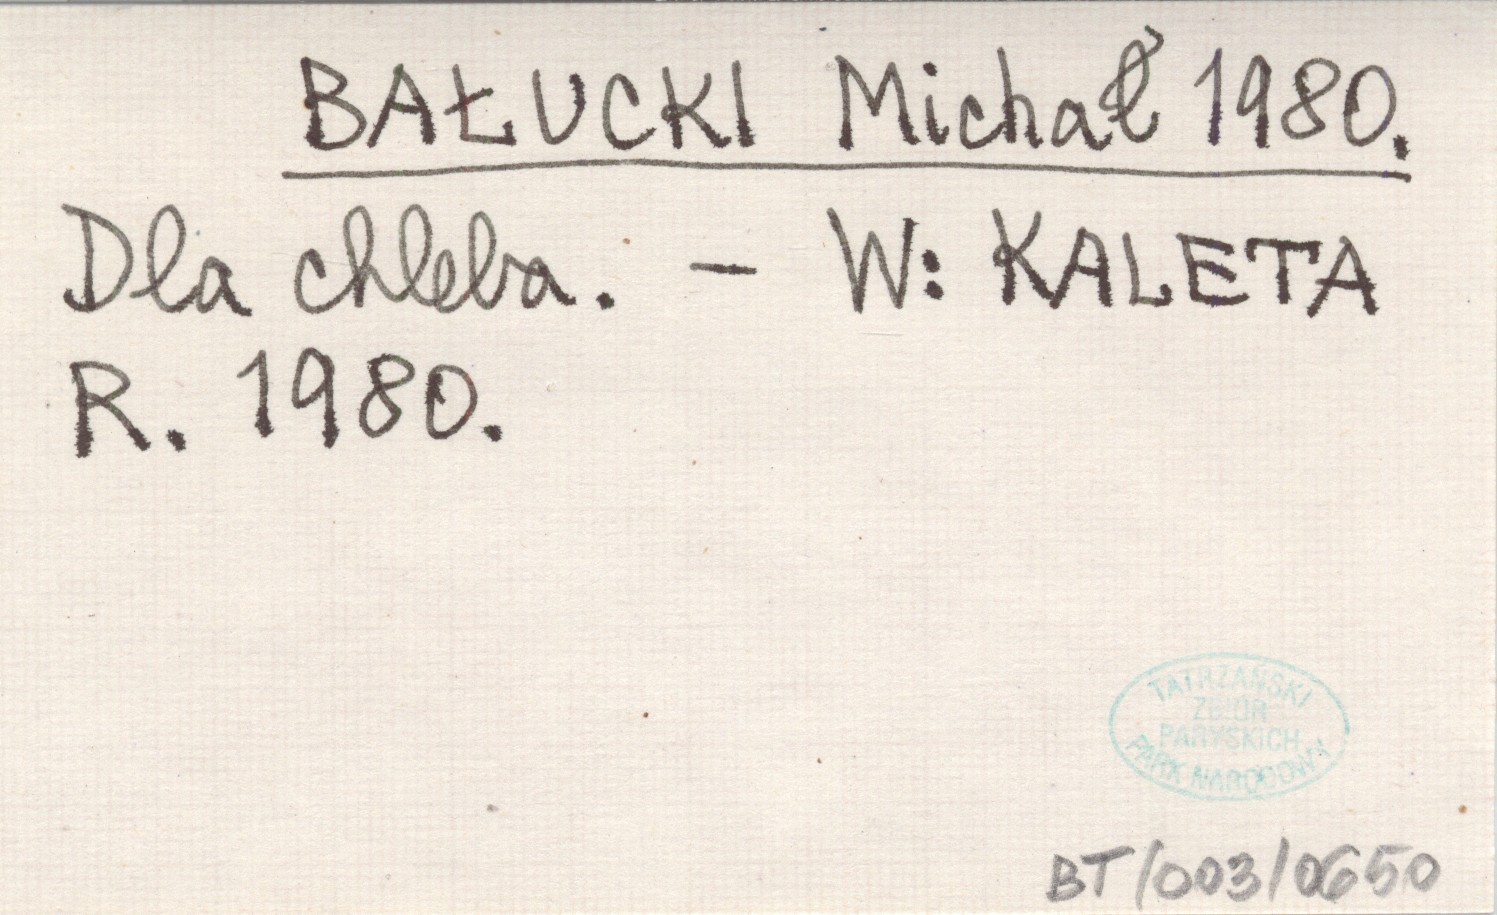 BAŁUCKI Michał 1980.
Dla chleba. – W: KALETA
R. 1980.
TATRZAŃSKI
ZBIÓR
PARYSKICH
PARK NARODOWY
BT/003/0650